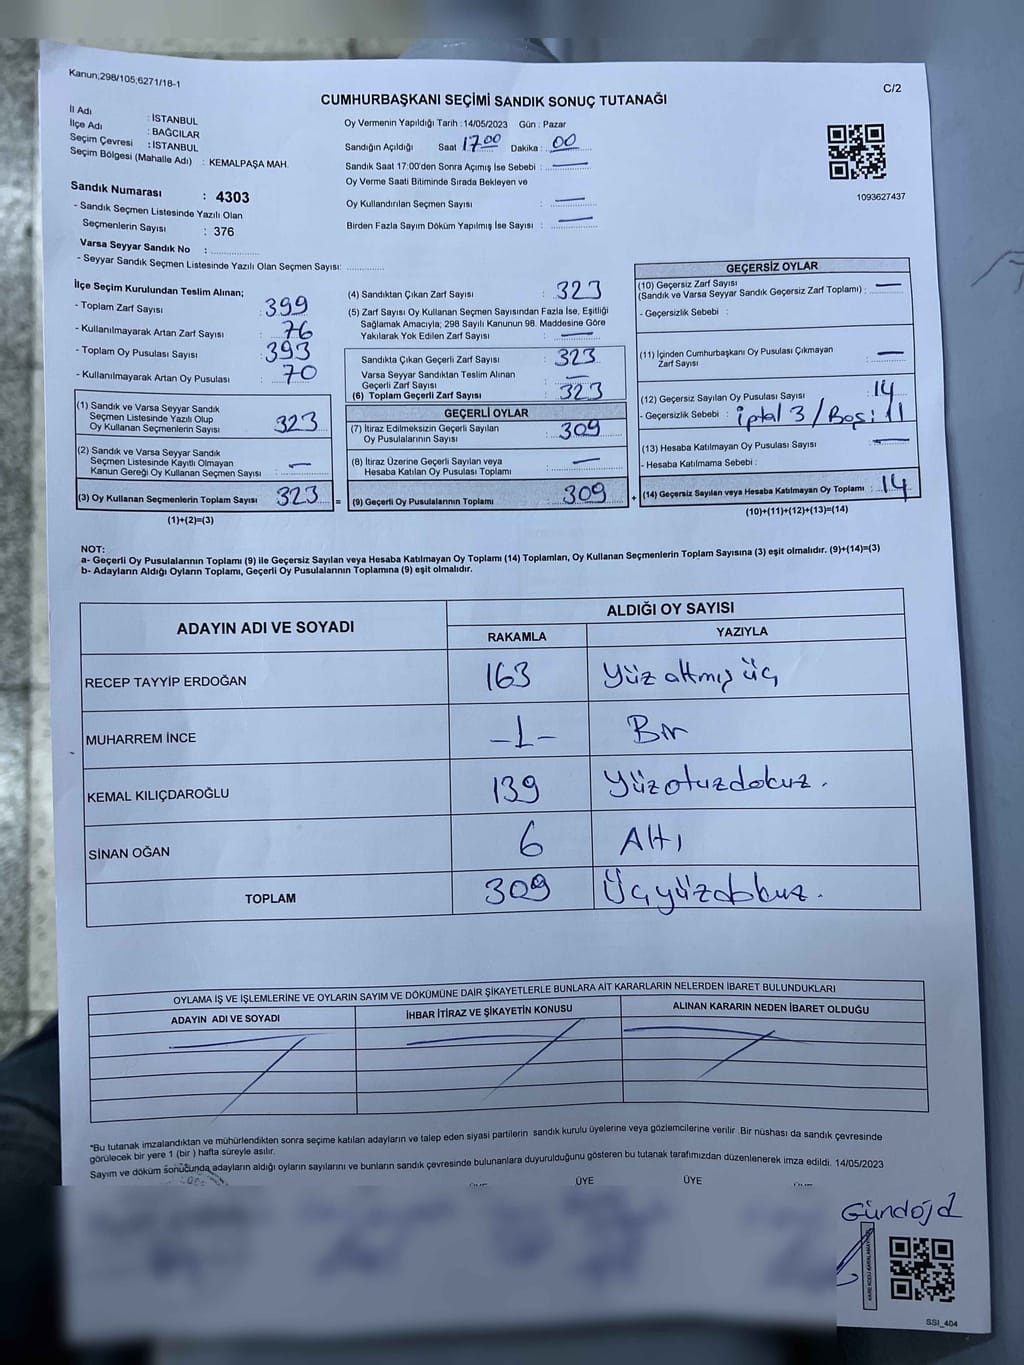 Kanun;298/105;6271/18-1
C/2
CUMHURBAŞKANI SEÇİMİ SANDIK SONUÇ TUTANAĞI
İl Adı : İSTANBUL
İlçe Adı : BAĞCILAR
Seçim Çevresi : İSTANBUL
Seçim Bölgesi (Mahalle Adı) : KEMALPAŞA MAH.
Sandık Numarası : 4303
- Sandık Seçmen Listesinde Yazılı Olan
Seçmenlerin Sayısı : 376
Varsa Seyyar Sandık No :
- Seyyar Sandık Seçmen Listesinde Yazılı Olan Seçmen Sayısı:
Oy Vermenin Yapıldığı Tarih :14/05/2023 Gün : Pazar
Sandığın Açıldığı Saat 17.00 Dakika : 00
Sandık Saat 17:00'den Sonra Açımış İse Sebebi : —
Oy Verme Saati Bitiminde Sırada Bekleyen ve
Oy Kullandırılan Seçmen Sayısı : —
Birden Fazla Sayım Döküm Yapılmış İse Sayısı : —
1093627437
İlçe Seçim Kurulundan Teslim Alınan;
- Toplam Zarf Sayısı : 399
- Kullanılmayarak Artan Zarf Sayısı : 76
- Toplam Oy Pusulası Sayısı : 393
- Kullanılmayarak Artan Oy Pusulası : 70
(1) Sandık ve Varsa Seyyar Sandık
Seçmen Listesinde Yazılı Olup
Oy Kullanan Seçmenlerin Sayısı : 323
(2) Sandık ve Varsa Seyyar Sandık
Seçmen Listesinde Kayıtlı Olmayan
Kanun Gereği Oy Kullanan Seçmen Sayısı : —
(3) Oy Kullanan Seçmenlerin Toplam Sayısı : 323 =
(1)+(2)=(3)
(4) Sandıktan Çıkan Zarf Sayısı : 323
(5) Zarf Sayısı Oy Kullanan Seçmen Sayısından Fazla İse, Eşitliği
Sağlamak Amacıyla; 298 Sayılı Kanunun 98. Maddesine Göre
Yakılarak Yok Edilen Zarf Sayısı : —
Sandıkta Çıkan Geçerli Zarf Sayısı : 323
Varsa Seyyar Sandıktan Teslim Alınan
Geçerli Zarf Sayısı : —
(6) Toplam Geçerli Zarf Sayısı : 323
GEÇERLİ OYLAR
(7) İtiraz Edilmeksizin Geçerli Sayılan
Oy Pusulalarının Sayısı : 309
(8) İtiraz Üzerine Geçerli Sayılan veya
Hesaba Katılan Oy Pusulası Toplamı : —
(9) Geçerli Oy Pusulalarının Toplamı : 309 +
GEÇERSİZ OYLAR
(10) Geçersiz Zarf Sayısı
(Sandık ve Varsa Seyyar Sandık Geçersiz Zarf Toplamı) : —
- Geçersizlik Sebebi :
(11) İçinden Cumhurbaşkanı Oy Pusulası Çıkmayan
Zarf Sayısı : —
(12) Geçersiz Sayılan Oy Pusulası Sayısı : 14
- Geçersizlik Sebebi : iptal 3 / Boş: 11
(13) Hesaba Katılmayan Oy Pusulası Sayısı : —
- Hesaba Katılmama Sebebi :
(14) Geçersiz Sayılan veya Hesaba Katılmayan Oy Toplamı : 14
(10)+(11)+(12)+(13)=(14)
NOT:
a- Geçerli Oy Pusulalarının Toplamı (9) ile Geçersiz Sayılan veya Hesaba Katılmayan Oy Toplamı (14) Toplamları, Oy Kullanan Seçmenlerin Toplam Sayısına (3) eşit olmalıdır. (9)+(14)=(3)
b- Adayların Aldığı Oyların Toplamı, Geçerli Oy Pusulalarının Toplamına (9) eşit olmalıdır.
ADAYIN ADI VE SOYADI
ALDIĞI OY SAYISI
RAKAMLA YAZIYLA
RECEP TAYYİP ERDOĞAN 163 Yüz altmış üç
MUHARREM İNCE -1- Bir
KEMAL KILIÇDAROĞLU 139 Yüzotuzdokuz.
SİNAN OĞAN 6 Altı
TOPLAM 309 Üçyüzdokuz.
OYLAMA İŞ VE İŞLEMLERİNE VE OYLARIN SAYIM VE DÖKÜMÜNE DAİR ŞİKAYETLERLE BUNLARA AİT KARARLARIN NELERDEN İBARET BULUNDUKLARI
ADAYIN ADI VE SOYADI İHBAR İTİRAZ VE ŞİKAYETİN KONUSU ALINAN KARARIN NEDEN İBARET OLDUĞU
*Bu tutanak imzalandıktan ve mühürlendikten sonra seçime katılan adayların ve talep eden siyasi partilerin sandık kurulu üyelerine veya gözlemcilerine verilir .Bir nüshası da sandık çevresinde
görülecek bir yere 1 (bir ) hafta süreyle asılır.
Sayım ve döküm sonucunda adayların aldığı oyların sayılarını ve bunların sandık çevresinde bulunanlara duyurulduğunu gösteren bu tutanak tarafımızdan düzenlenerek imza edildi. 14/05/2023
ÜYE ÜYE
SSİ_404